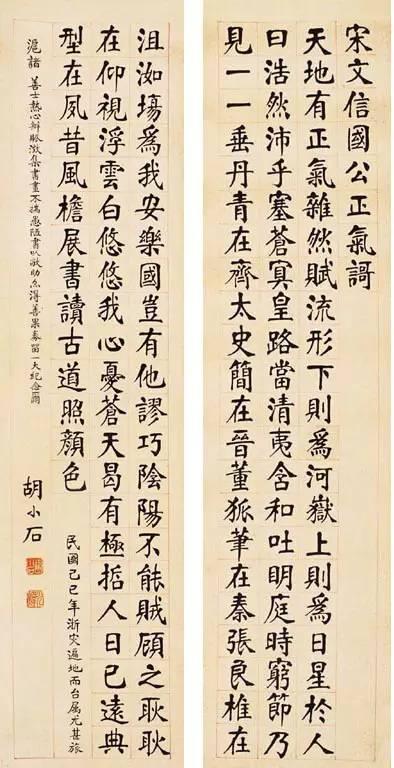 宋文信國公正氣謌
天地有正氣雜然賦流形下則爲河嶽上則爲日星於人
曰浩然沛乎塞蒼冥皇路當清夷含和吐明庭時窮節乃
見一一垂丹青在齊太史簡在晉董狐筆在秦張良椎在
沮洳場爲我安樂國豈有他謬巧陰陽不能賊顧之耿耿
在仰視浮雲白悠悠我心憂蒼天曷有極悊人日已遠典
型在夙昔風檐展書讀古道照顏色
民國己巳年浙灾遍地而台属尤甚旅
滬諸 善士熱心辦賑徵集書畫不揣愚陋書以敬助得善果留一大紀念爾
胡小石